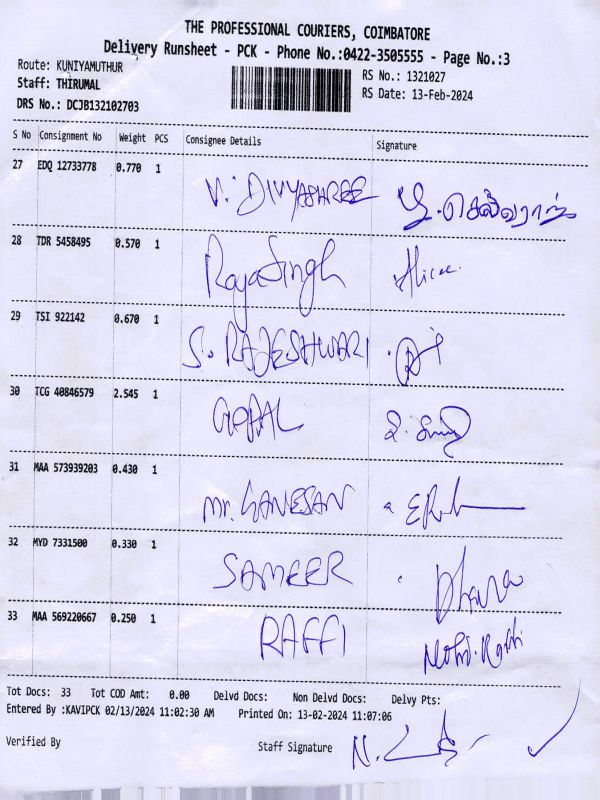 THE PROFESSIONAL COURIERS, COIMBATORE
Delivery Runsheet - PCK - Phone No.:0422-3505555 - Page No.:3
Route: KUNIYAMUTHUR
RS No.: 1321027
Staff: THIRUMAL
RS Date: 13-Feb-2024
DRS No.: DCJB132102703
S No Consignment No Weight PCS Consignee Details Signature
27 EDQ 12733778 0.770 1 V. DIVYASHREE
28 TDR 5458495 0.570 1 RajaSingh
29 TSI 922142 0.670 1 S. RAJESHWARI
30 TCG 40846579 2.545 1 GOPAL
31 MAA 573939203 0.430 1 Mr. GANESAN
32 MYD 7331500 0.330 1 SAMEER
33 MAA 569220667 0.250 1 RAFFI
Tot Docs: 33 Tot COD Amt: 0.00 Delvd Docs: Non Delvd Docs: Delvy Pts:
Entered By :KAVIPCK 02/13/2024 11:02:30 AM Printed On: 13-02-2024 11:07:06
Verified By Staff Signature